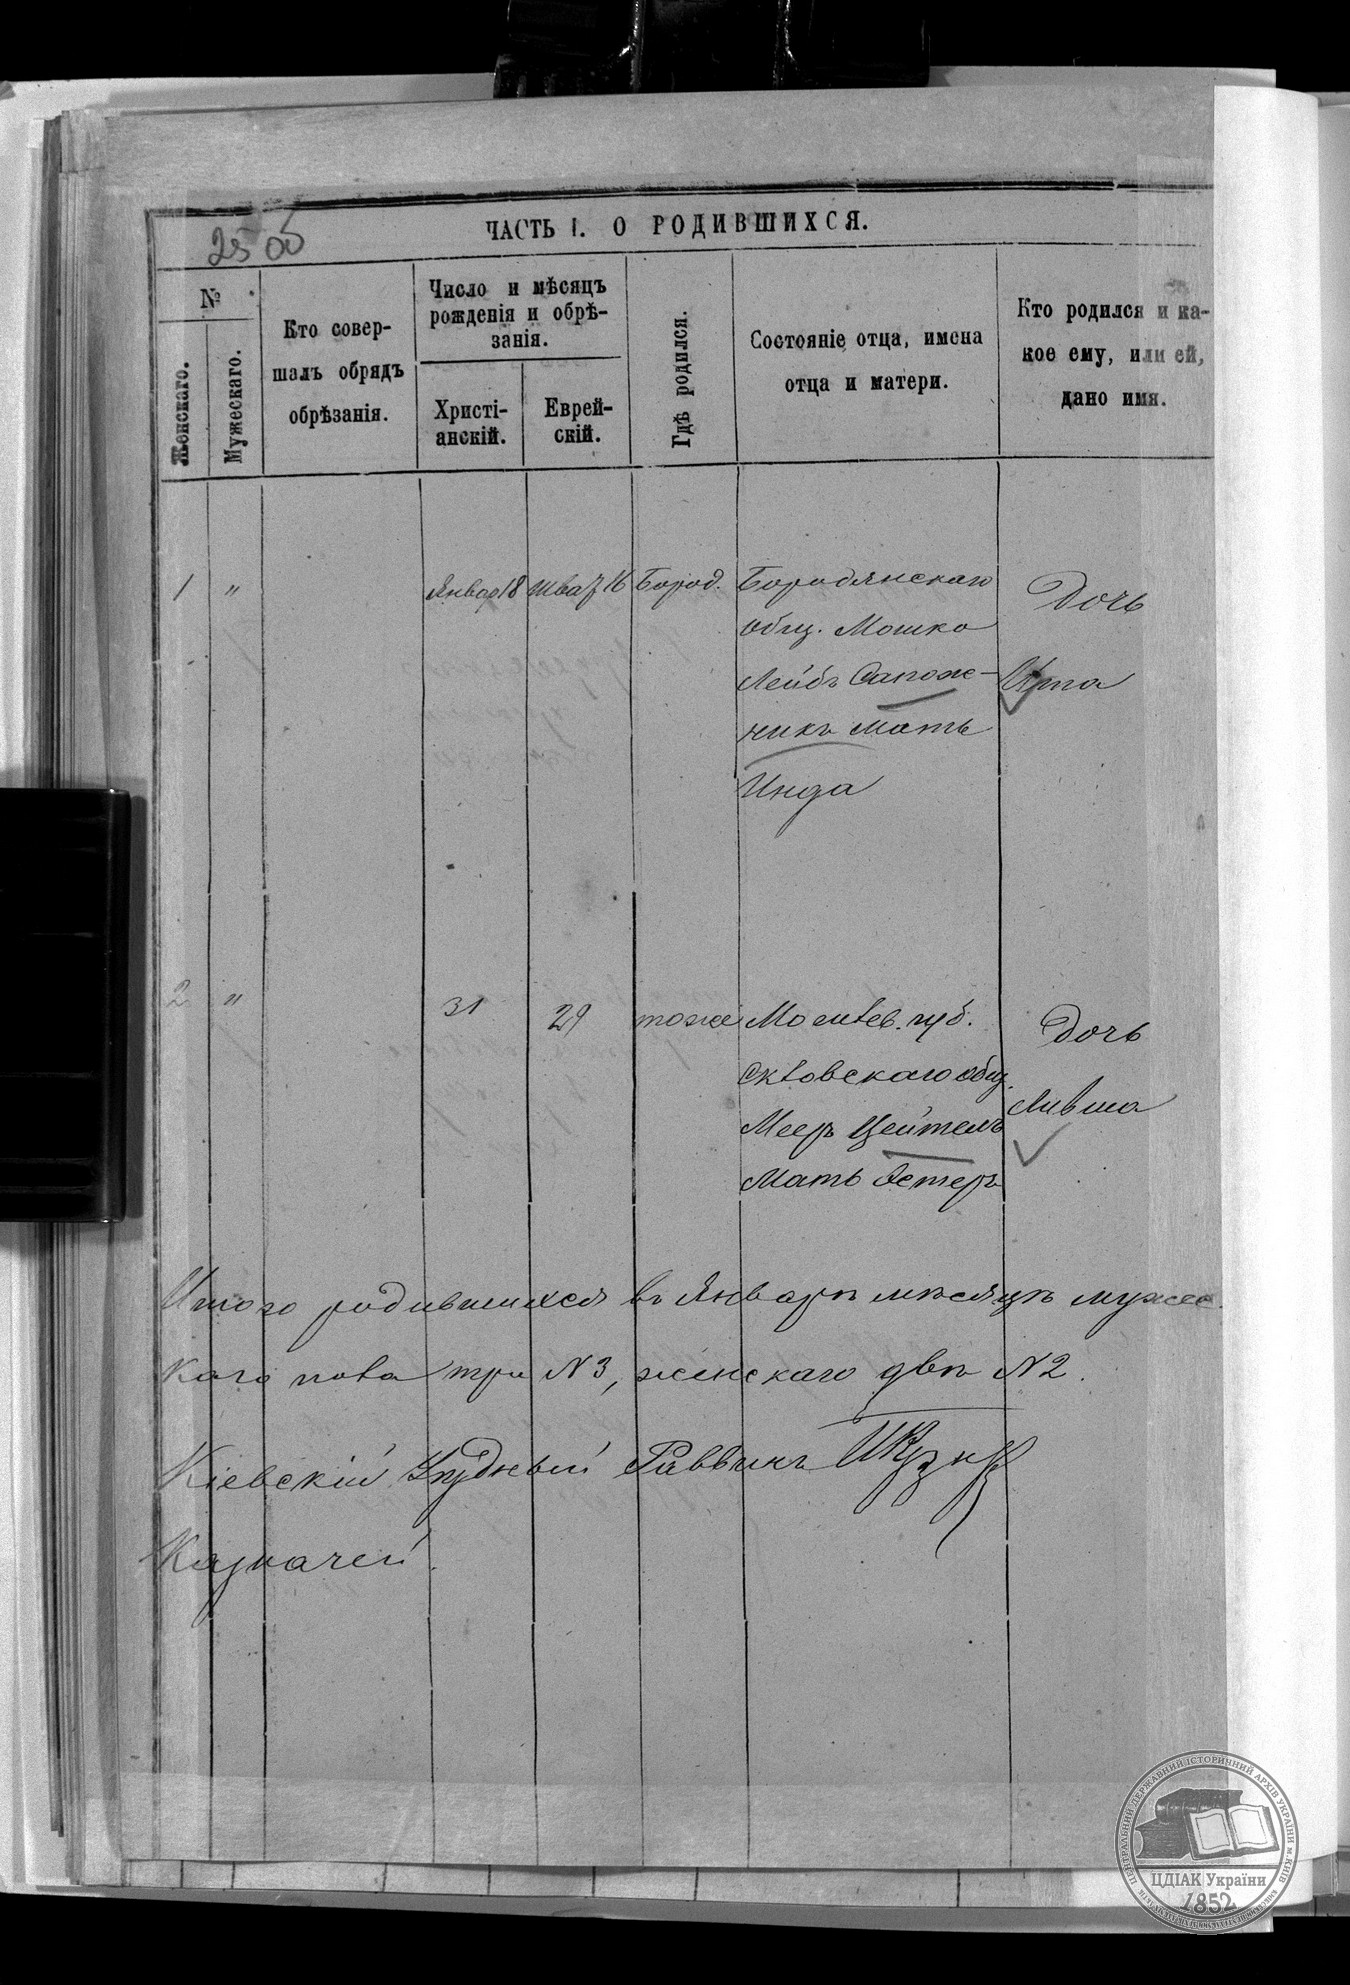 25 об
ЧАСТЬ I. О РОДИВШИХСЯ.
№
Женскаго.
Мужескаго.
Кто совер-
шалъ обрядъ
обрѣзанія.
Число и мѣсяцъ
рожденія и обрѣ-
занія.
Христі-
анскій.
Еврей-
скій.
Гдѣ родился.
Состояніе отца, имена
отца и матери.
Кто родился и ка-
кое ему, или ей,
дано имя.
1 " Январ 18 Шват 16 Бород. Бородянскаго Дочь
общ. Мошко
Лейбъ Сапож-
никъ Мать
Инда
2 " 31 29 тоже Могилев. губ. Дочь
общ.
Мееръ Цейтель Ливша
Мать Эстеръ
Итого родившихся въ Январѣ мѣсяцѣ мужес
каго пола три N 3, женскаго двѣ N 2.
Кіевскій Раввинъ
Казначей
ЦЕНТРАЛЬНИЙ ДЕРЖАВНИЙ ІСТОРИЧНИЙ АРХІВ УКРАЇНИ м. КИЇВ
ЦДІАК України
1852